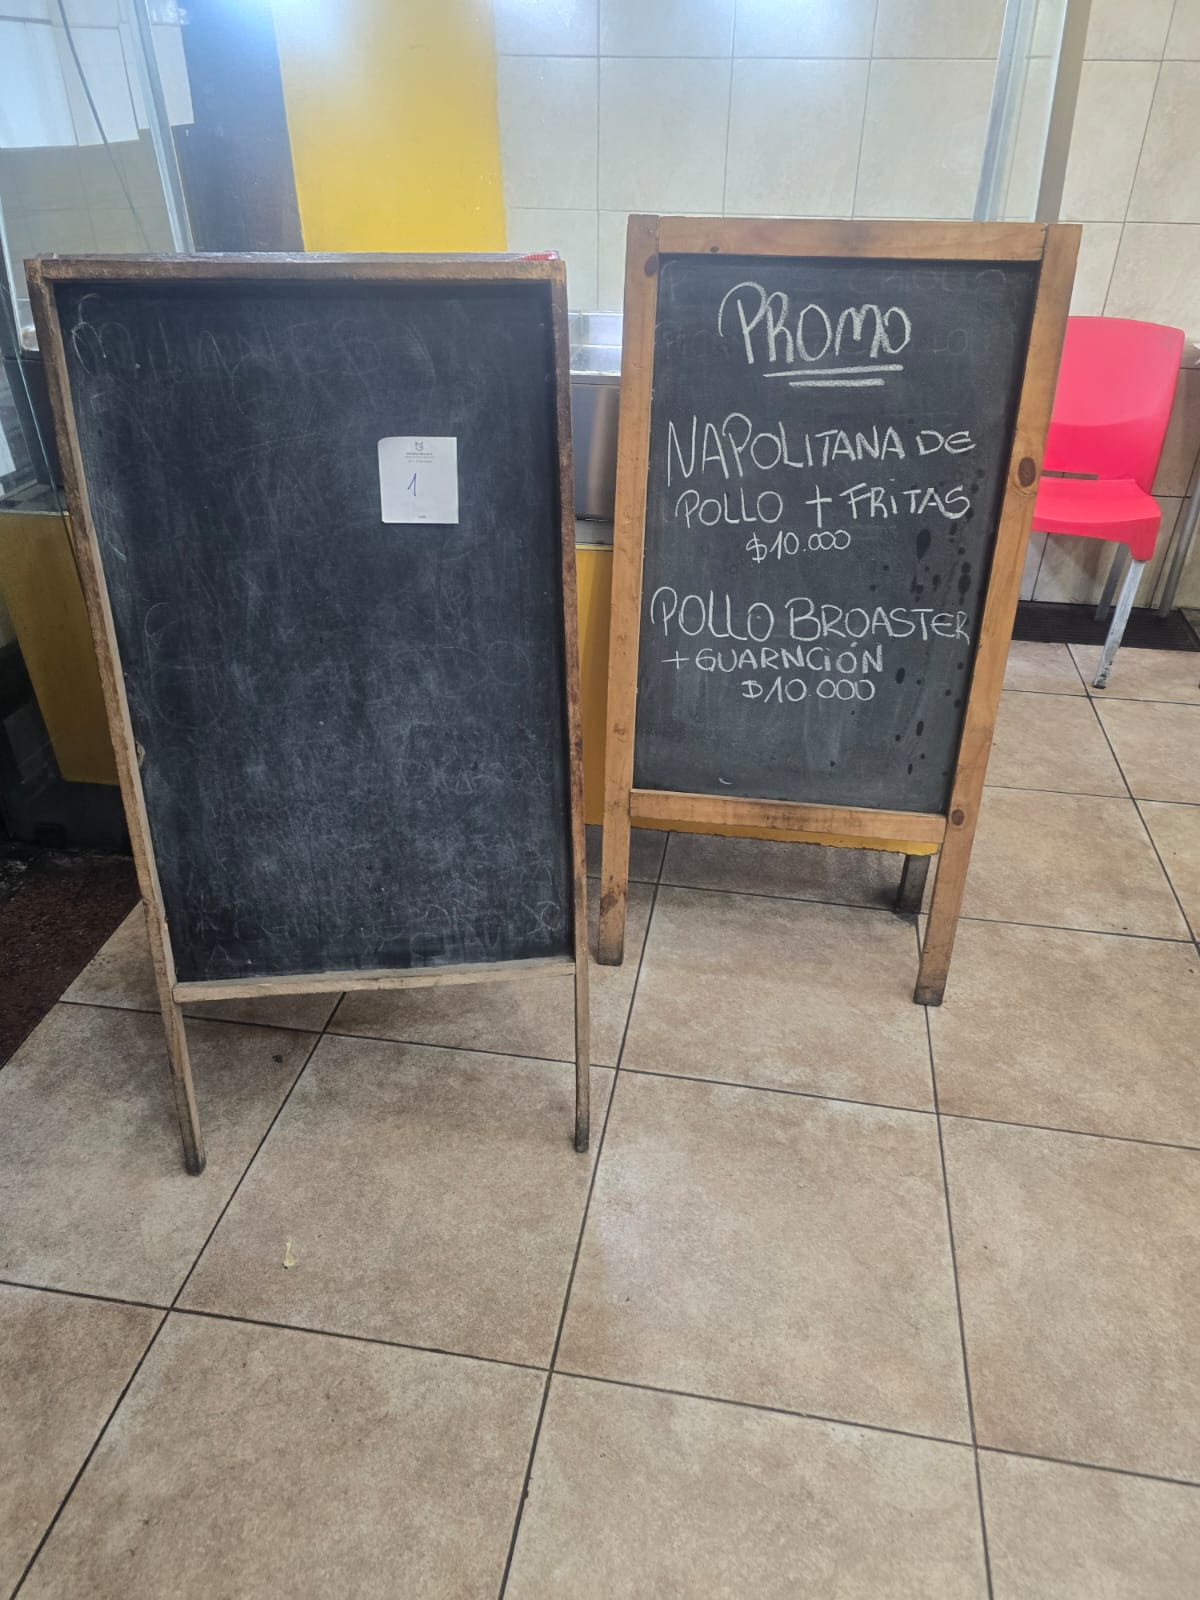 1
PROMO
NAPOLITANA DE
POLLO + FRITAS
$10.000
POLLO BROASTER
+ GUARNCIÓN
$10.000